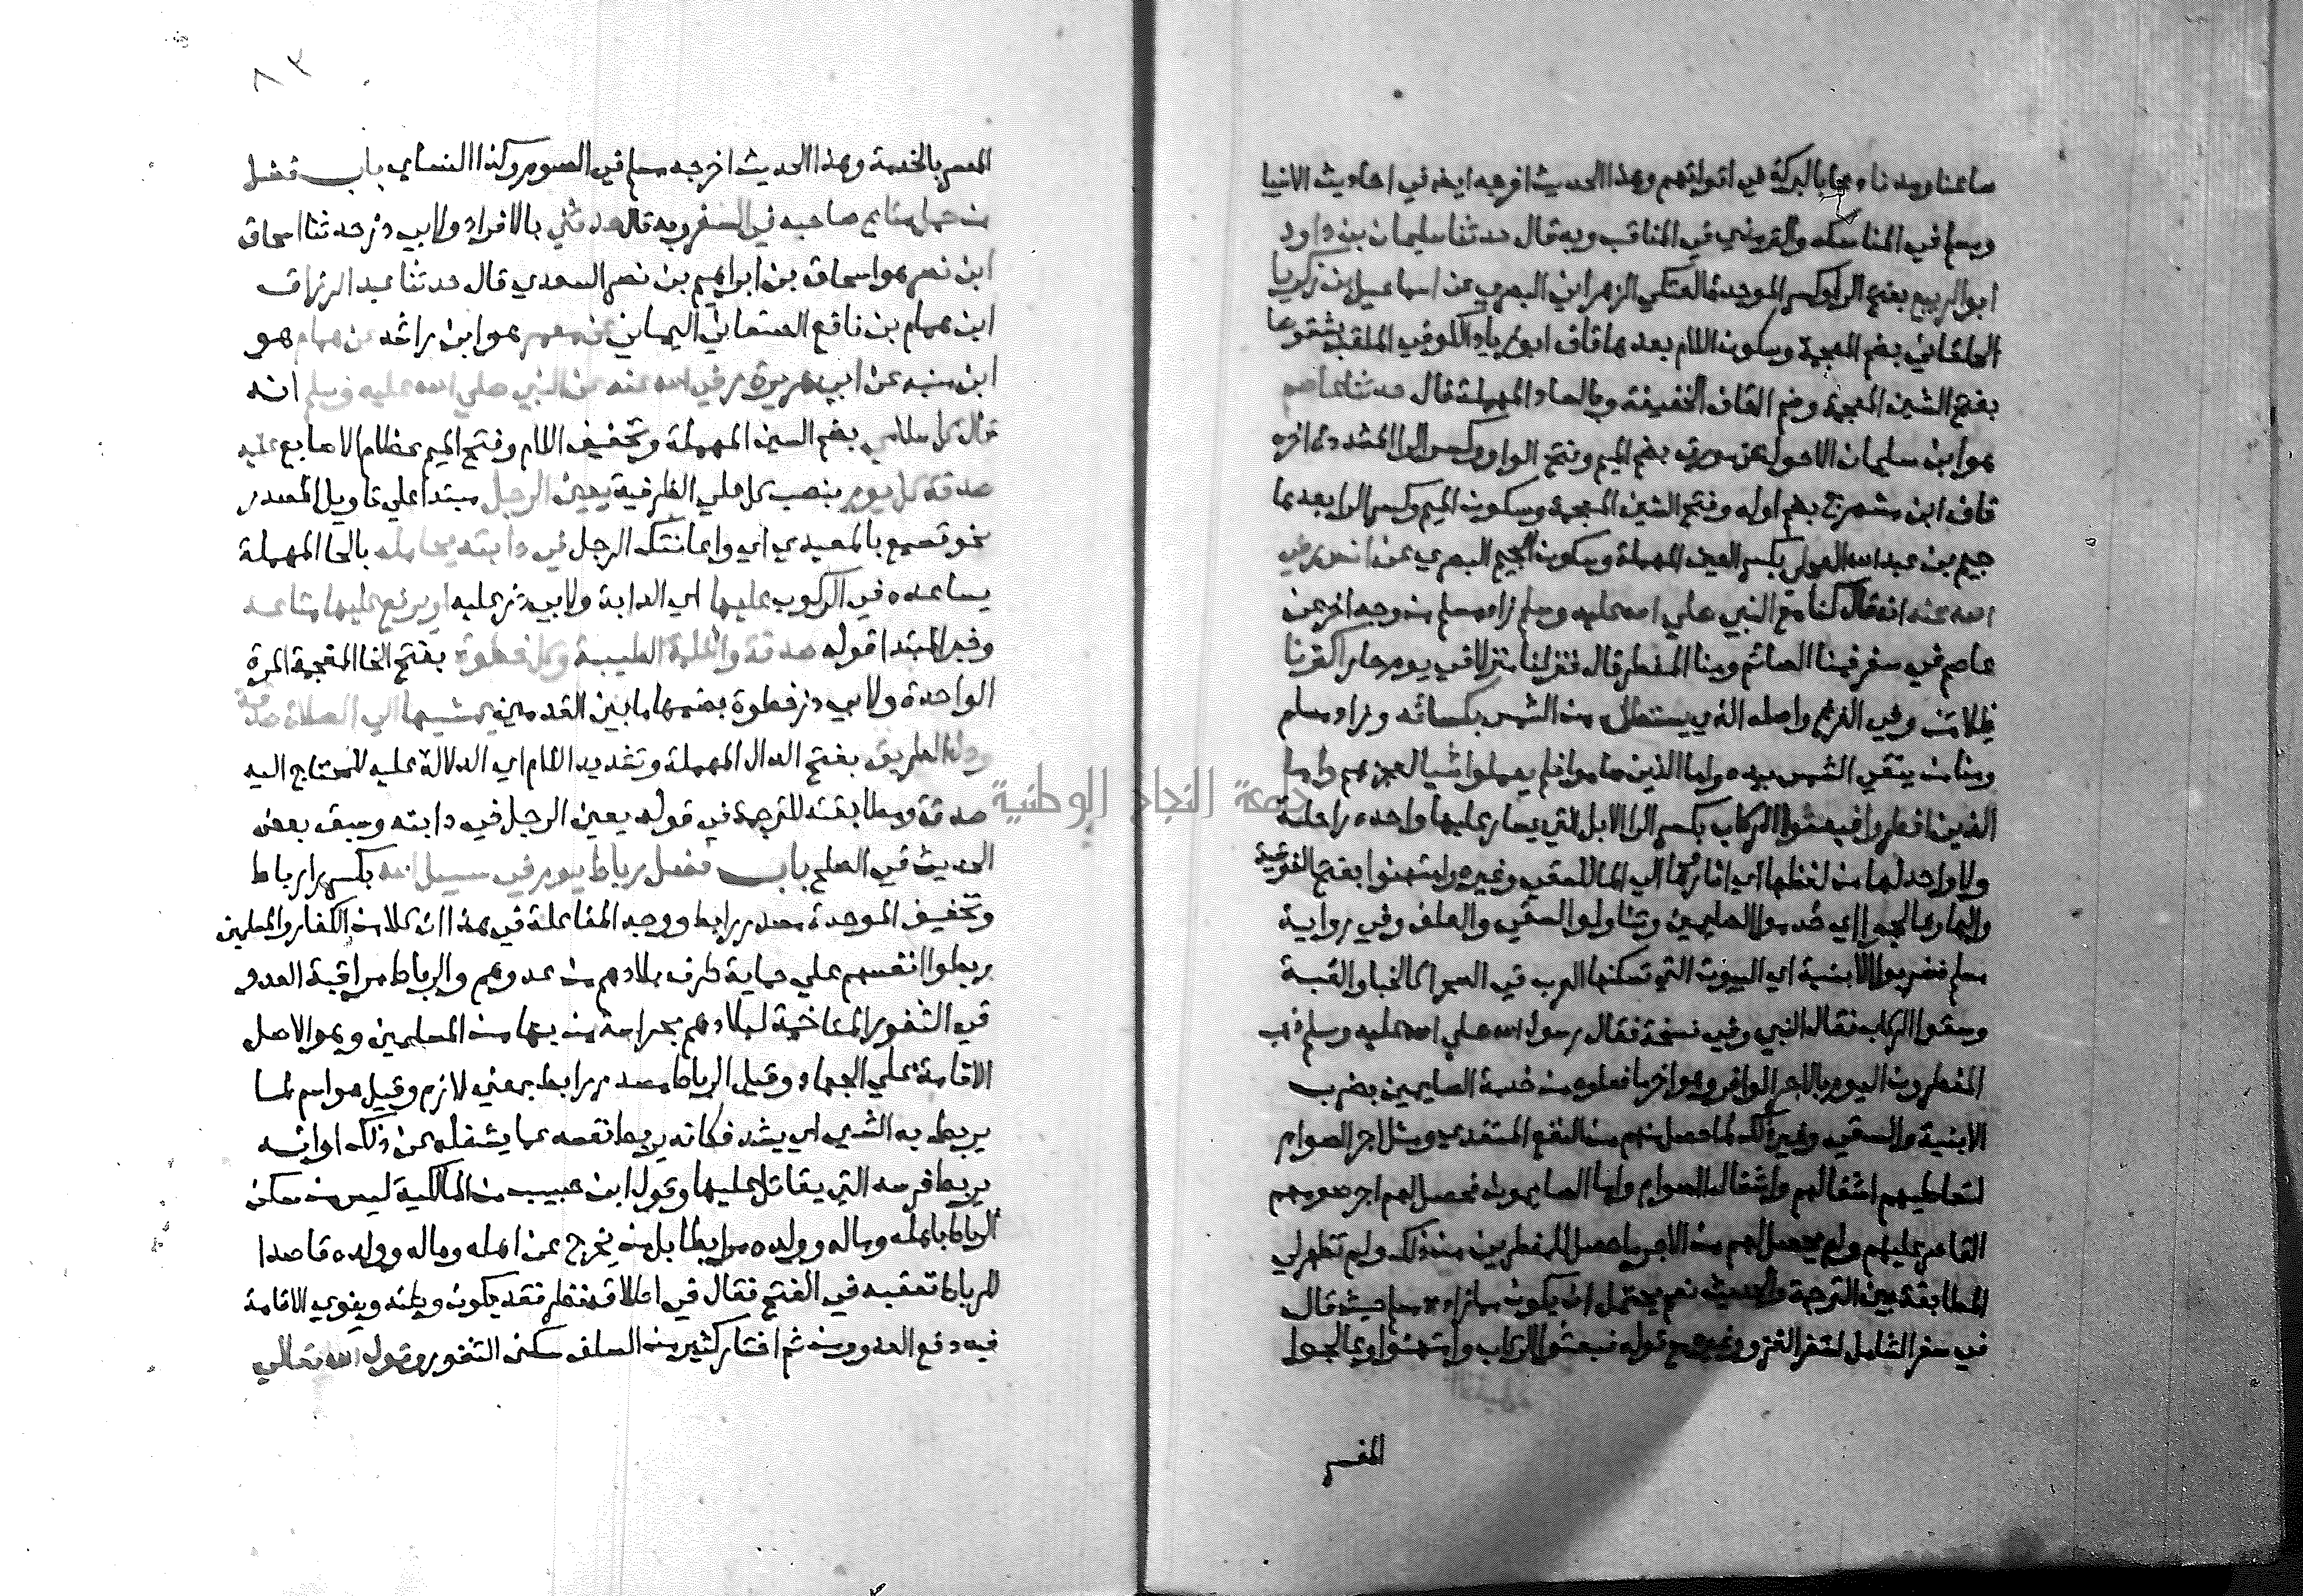 صاعنا ومدنا دعا بالبركة في اقواتهم وهذا الحديث اخرجه ايضا في احاديث الانبيا
ومسلم في المناسك والترمذي في المناقب وبه قال حدثنا سليمان بن داود
ابو الربيع بفتح الرا وكسر الموحدة العتكي الزهراني البصري عن اسماعيل بن زكريا
الخلقاني بضم المعجمة وسكون اللام بعدها قاف ابو زياد الكوفي الملقب بشقوصا
بفتح الشين المعجمة وضم القاف الخفيفة وبالصاد المهملة قال حدثنا عاصم
هو ابن سليمان الاحول عن مورق بضم الميم وفتح الواو وكسر الرا المشددة اخره
قاف ابن مشمرج بضم اوله وفتح الشين المعجمة وسكون الميم وكسر الرا بعدها
جيم بن عبد الله العجلي بكسر العين المهملة وسكون الجيم البصري عن انس رضي
الله عنه انه قال كنا مع النبي صلى الله عليه وسلم زاد مسلم من وجه اخر عن
عاصم في سفر فمنا الصائم ومنا المفطر قال فنزلنا منزلا في يوم حار اكثرنا
ظلا من وفي الفرع واصله الذي يستظل من الشمس بكسائه وزاد مسلم
ومنا من يتقي الشمس بيده واما الذين صاموا فلم يعملوا شيا لعجزهم واما
الذين افطروا فبعثوا الركاب بكسر الرا الابل التي يسار عليها واحده راحلة
ولا واحد لها من لفظها اي اثاروها الي الما للسقي وغيره وامتهنوا بفتح الفوقية
والها وعالجوا اي خدموا الصايمين وتناولوا السقي والعلف وفي رواية
مسلم فضربوا الابنية اي البيوت التي تسكنها العرب في الصحرا كالخبا والقبة
وسقوا الركاب فقال النبي وفي نسخة فقال رسول الله صلي الله عليه وسلم ذهب
المفطرون اليوم بالاجر الوافر وهو اجر ما فعلوه من خدمة الصايمين بضرب
الابنية والسقي وغير ذلك لما حصل منهم من النفع المتعدي ومثل اجر الصوام
لتعاطيهم اشغالهم واشغال الصوام واما الصايمون فحصل لهم اجر صومهم
القاصر عليهم ولم يحصل لهم من الاجر ما حصل للمفطرين من ذلك ولم تظهر لي
المطابقة بين الترجمة والحديث نعم يحتمل ان يكون مما زاده مسلم حيث قال
في سفر الشامل لسفر الغزو وغيره مع قوله فبعثوا الركاب وامتهنوا وعالجوا
المفسر
٨٣
المفسر بالخدمة وهذا الحديث اخرجه مسلم في الصوم وكذا النساي باب فضل
من حمل متاع صاحبه في السفر وبه قال حدثني بالافراد ولابي ذر حدثنا اسحاق
ابن نصر هو اسحاق بن ابراهيم بن نصر السعدي قال حدثنا عبد الرزاق
ابن همام بن نافع الصنعاني اليماني عن معمر هو ابن راشد عن همام هو
ابن منبه عن ابي هريرة رضي الله عنه عن النبي صلي الله عليه وسلم انه
قال كل سلامي بضم السين المهملة وتخفيف اللام وفتح الميم عظام الاصابع عليه
صدقة كل يوم بنصب كل علي الظرفية يعين الرجل مبتدا علي تاويل المصدر
نحو تسمع بالمعيدي اي واعانتك الرجل في دابته يحامله بالحا المهملة
يساعده في الركوب عليها اي الدابة ولابي ذر عليه او يرفع عليها متاعه
وخبر المبتدا قوله صدقة والكلمة الطيبة وكل خطوة بفتح الخا المعجمة المرة
الواحدة ولابي ذر خطوة بضمها ما بين القدمين يمشيها الي الصلاة صدقة
ودل الطريق بفتح الدال المهملة وتشديد اللام اي الدلالة عليه للمحتاج اليه
صدقة ومطابقته للترجمة في قوله يعين الرجل في دابته وسبق بعض
الحديث في الصلح باب فضل رباط يوم في سبيل الله بكسر را رباط
وتخفيف الموحدة مصدر رابط ووجه المفاعلة في هذا ان كلا من الكفار والمسلمين
ربطوا انفسهم علي حماية طرف بلادهم من عدوهم والرباط مراقبة العدو
في الثغور المتاخمة لبلادهم بحراسة من بها من المسلمين وهو الاصل
الاقامة علي الجهاد وقيل الرباط مصدر رابط بمعني لازم وقيل هو اسم لما
يربط به الشي اي يشد فكانه يربط نفسه عما يشغله عن ذلك او انه
يربط فرسه التي يقاتل عليها وقول ابن حبيب من المالكية ليس من سكن
الرباط باهله وماله وولده مرابطا بل من يخرج عن اهله وماله وولده قاصدا
للرباط تعقبه في الفتح فقال في اطلاقه نظر فقد يكون وطنه وينوي الاقامة
فيه دفع العدو ومن ثم اختار كثير من السلف سكني الثغور وقول الله تعالي
جامعة النجاح الوطنية